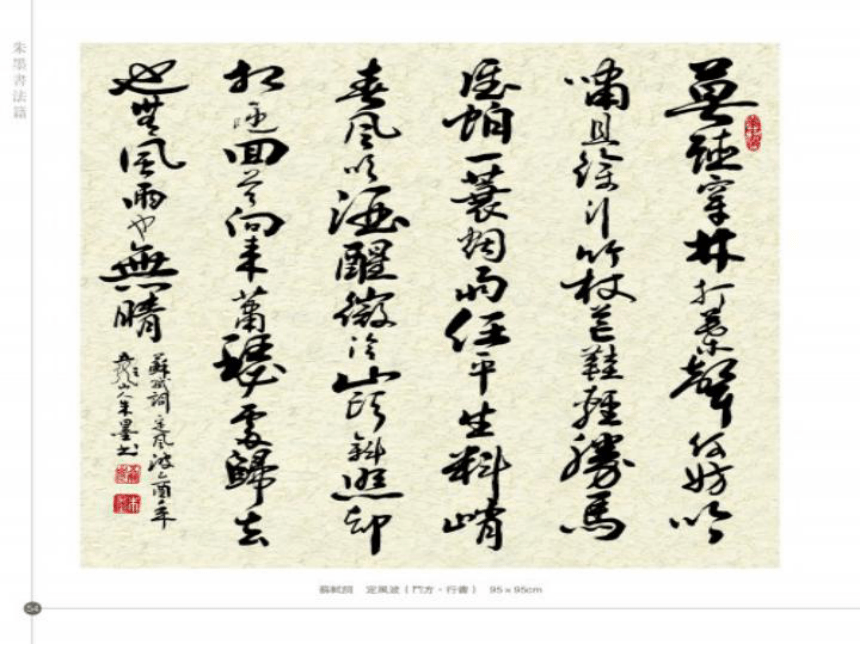 朱墨書法
莫聽穿林打葉聲何妨吟
嘯且徐行竹杖芒鞋輕勝馬
誰怕一蓑烟雨任平生料峭
春風吹酒醒微冷山頭斜照却
相迎回首向來蕭瑟處歸去
也無風雨也無晴
蘇軾詞定風波乙酉年
山人朱墨书
蘇軾詞 定風波（鬥方·行書） 95×95cm
54